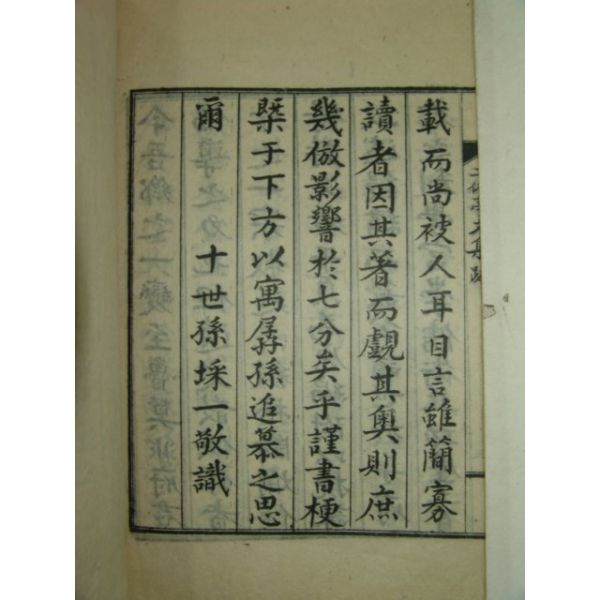 載而尚被人耳目言雖簡寡
讀者因其著而覷其奧則庶
幾倣影響於七分矣乎謹書梗
槩于下方以寓孱孫追慕之思
爾　　十世孫埰一敬識